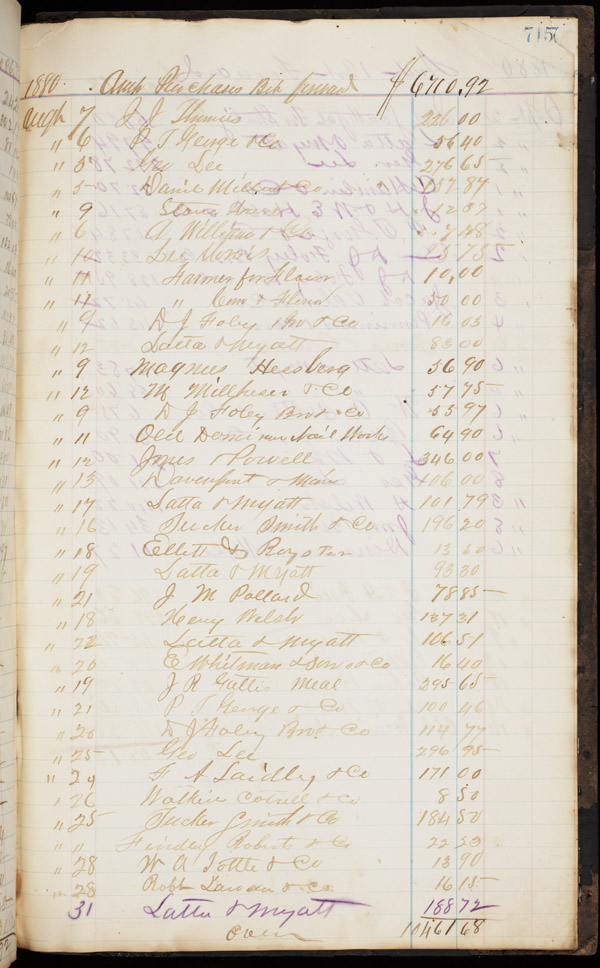 715
1880. Am't Purchases Bt forward $6710.92
Augh 7 J J Thomas 226 00
" 6 P T George & Co 56 40
" 5 Geo Lee 276 65
" 5 Dan'l Miller & Co 87
" 9 Stone
" 6 A Williams & Co 7 48
" 10 Lee Morris 75
" 11 Farmer for Flour 10,00
" 12 " Corn & Flour 50 00
" 9 D J Foley Bro & Co 16 03
" 12 Latta & Myatt 83 00
" 9 Magnus Hessberg 36 90
" 12 M Millheiser & Co 57 75
" 9 D J Foley Bro & Co 53 97
" 11 Old Dominion Nail Works 64 90
" 12 Jones & Powell 346 00
" 13 Davenport & Morris 406 00
" 17 Latta & Myatt 101 79
" 16 Tucker Smith & Co 196 20
" 18 Ellett & Royster 13 50
" 19 Latta & Myatt 93 30
" 21 J M Pollard 78 85
" 18 Henry Welsh 137 31
" 22 Latta & Myatt 106 51
" 20 E Whitman & Sons & Co 16 40
" 19 J R Gattis Meal 295 65
" 21 P T George & Co 100 46
" 20 D J Foley Bro & Co 114 77
" 25 Geo Lee 296 95
" 24 F A Laidley & Co 171 00
" 26 Watkins Cotrell & Co 8 50
" 25 Tucker Smith & Co 184 50
" " Findley Roberts & Co 22 23
" 28 W A Tottle & Co 13 90
" 28 Robt Lawson & Co 16 15
31 Latta & Myatt 188 72
over 11461 68